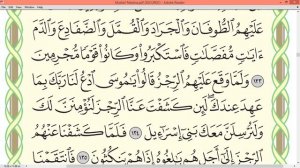 Mushaf Madina.pdf (SECURED) - Adobe Reader
عَلَيْهِمُ ٱلطُّوفَانَ وَٱلْجَرَادَ وَٱلْقُمَّلَ وَٱلضَّفَادِعَ وَٱلدَّمَ
ءَايَٰتٍ مُّفَصَّلَٰتٍ فَٱسْتَكْبَرُوا۟ وَكَانُوا۟ قَوْمًا مُّجْرِمِينَ
١٣٣ وَلَمَّا وَقَعَ عَلَيْهِمُ ٱلرِّجْزُ قَالُوا۟ يَٰمُوسَى ٱدْعُ لَنَا رَبَّكَ بِمَا
عَهِدَ عِندَكَ ۖ لَئِن كَشَفْتَ عَنَّا ٱلرِّجْزَ لَنُؤْمِنَنَّ لَكَ
وَلَنُرْسِلَنَّ مَعَكَ بَنِىٓ إِسْرَٰٓءِيلَ ١٣٤ فَلَمَّا كَشَفْنَا عَنْهُمُ
ٱلرِّجْزَ إِلَىٰٓ أَجَلٍ هُم بَٰلِغُوهُ إِذَا هُمْ يَنكُثُونَ ١٣٥ فَٱنتَقَمْنَا